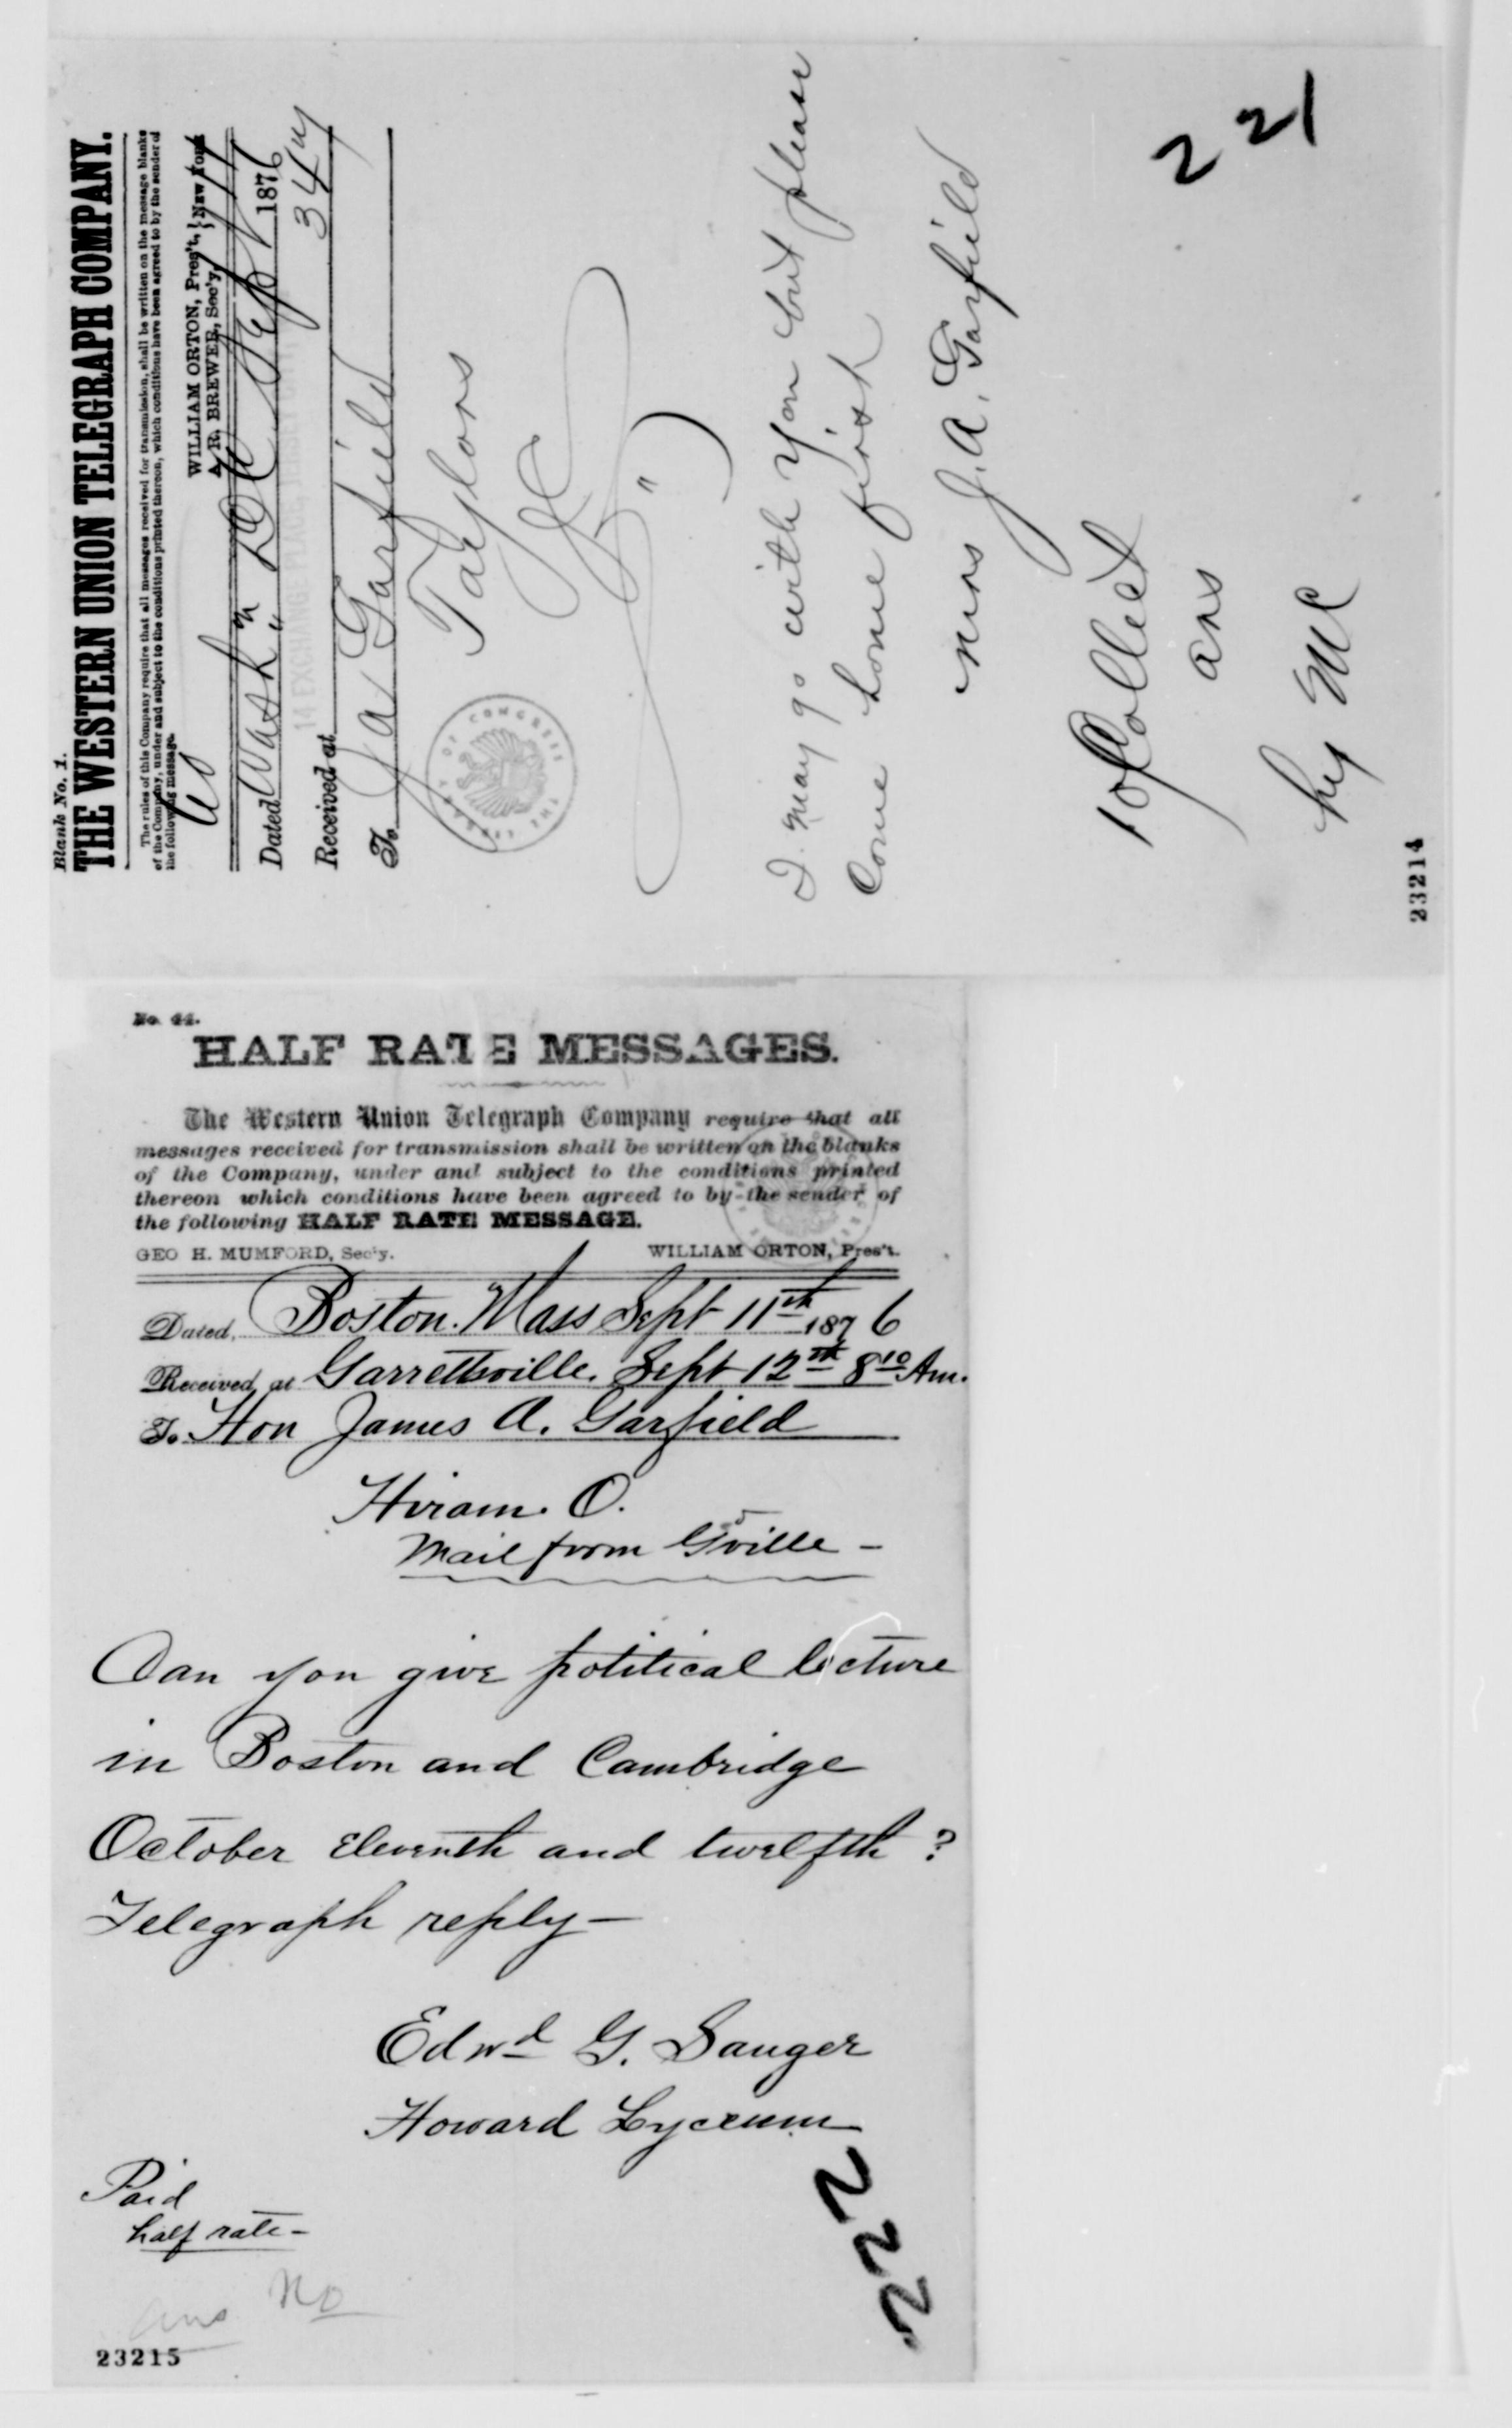 Blank No. 1.
THE WESTERN UNION TELEGRAPH COMPANY.
The rules of this Company require that all messages received for transmission, shall be written on the message blanks
of the Company, under and subject to the conditions printed thereon, which conditions have been agreed to by the sender of
the following message.
WILLIAM ORTON, Pres't, } New York
A. R. BREWER, Sec'y,
Dated Wash"n" DC Sept 11 1876
Received at 34
To Jas Garfield
Taylors
I may go with you but please
Come home first
Mrs J. A. Garfield
10 Collect
ans
by MC
221
23214
No. 44.
HALF RATE MESSAGES.
The Western Union Telegraph Company require that all
messages received for transmission shall be written on the blanks
of the Company, under and subject to the conditions printed
thereon which conditions have been agreed to by the sender of
the following HALF RATE MESSAGE.
GEO H. MUMFORD, Sec'y. WILLIAM ORTON, Pres't.
Dated, Boston. Mass Sept 11th 1876
Received at Garrettsville. Sept 12th 8 10 Am.
To Hon James A. Garfield
Hiram. O.
Mail from Gville -
Can you give political lecture
in Boston and Cambridge
October Eleventh and twelfth ?
Telegraph reply -
Edwd G. Sanger
Howard Lyceum
Paid
half rate -
ans No
222
23215